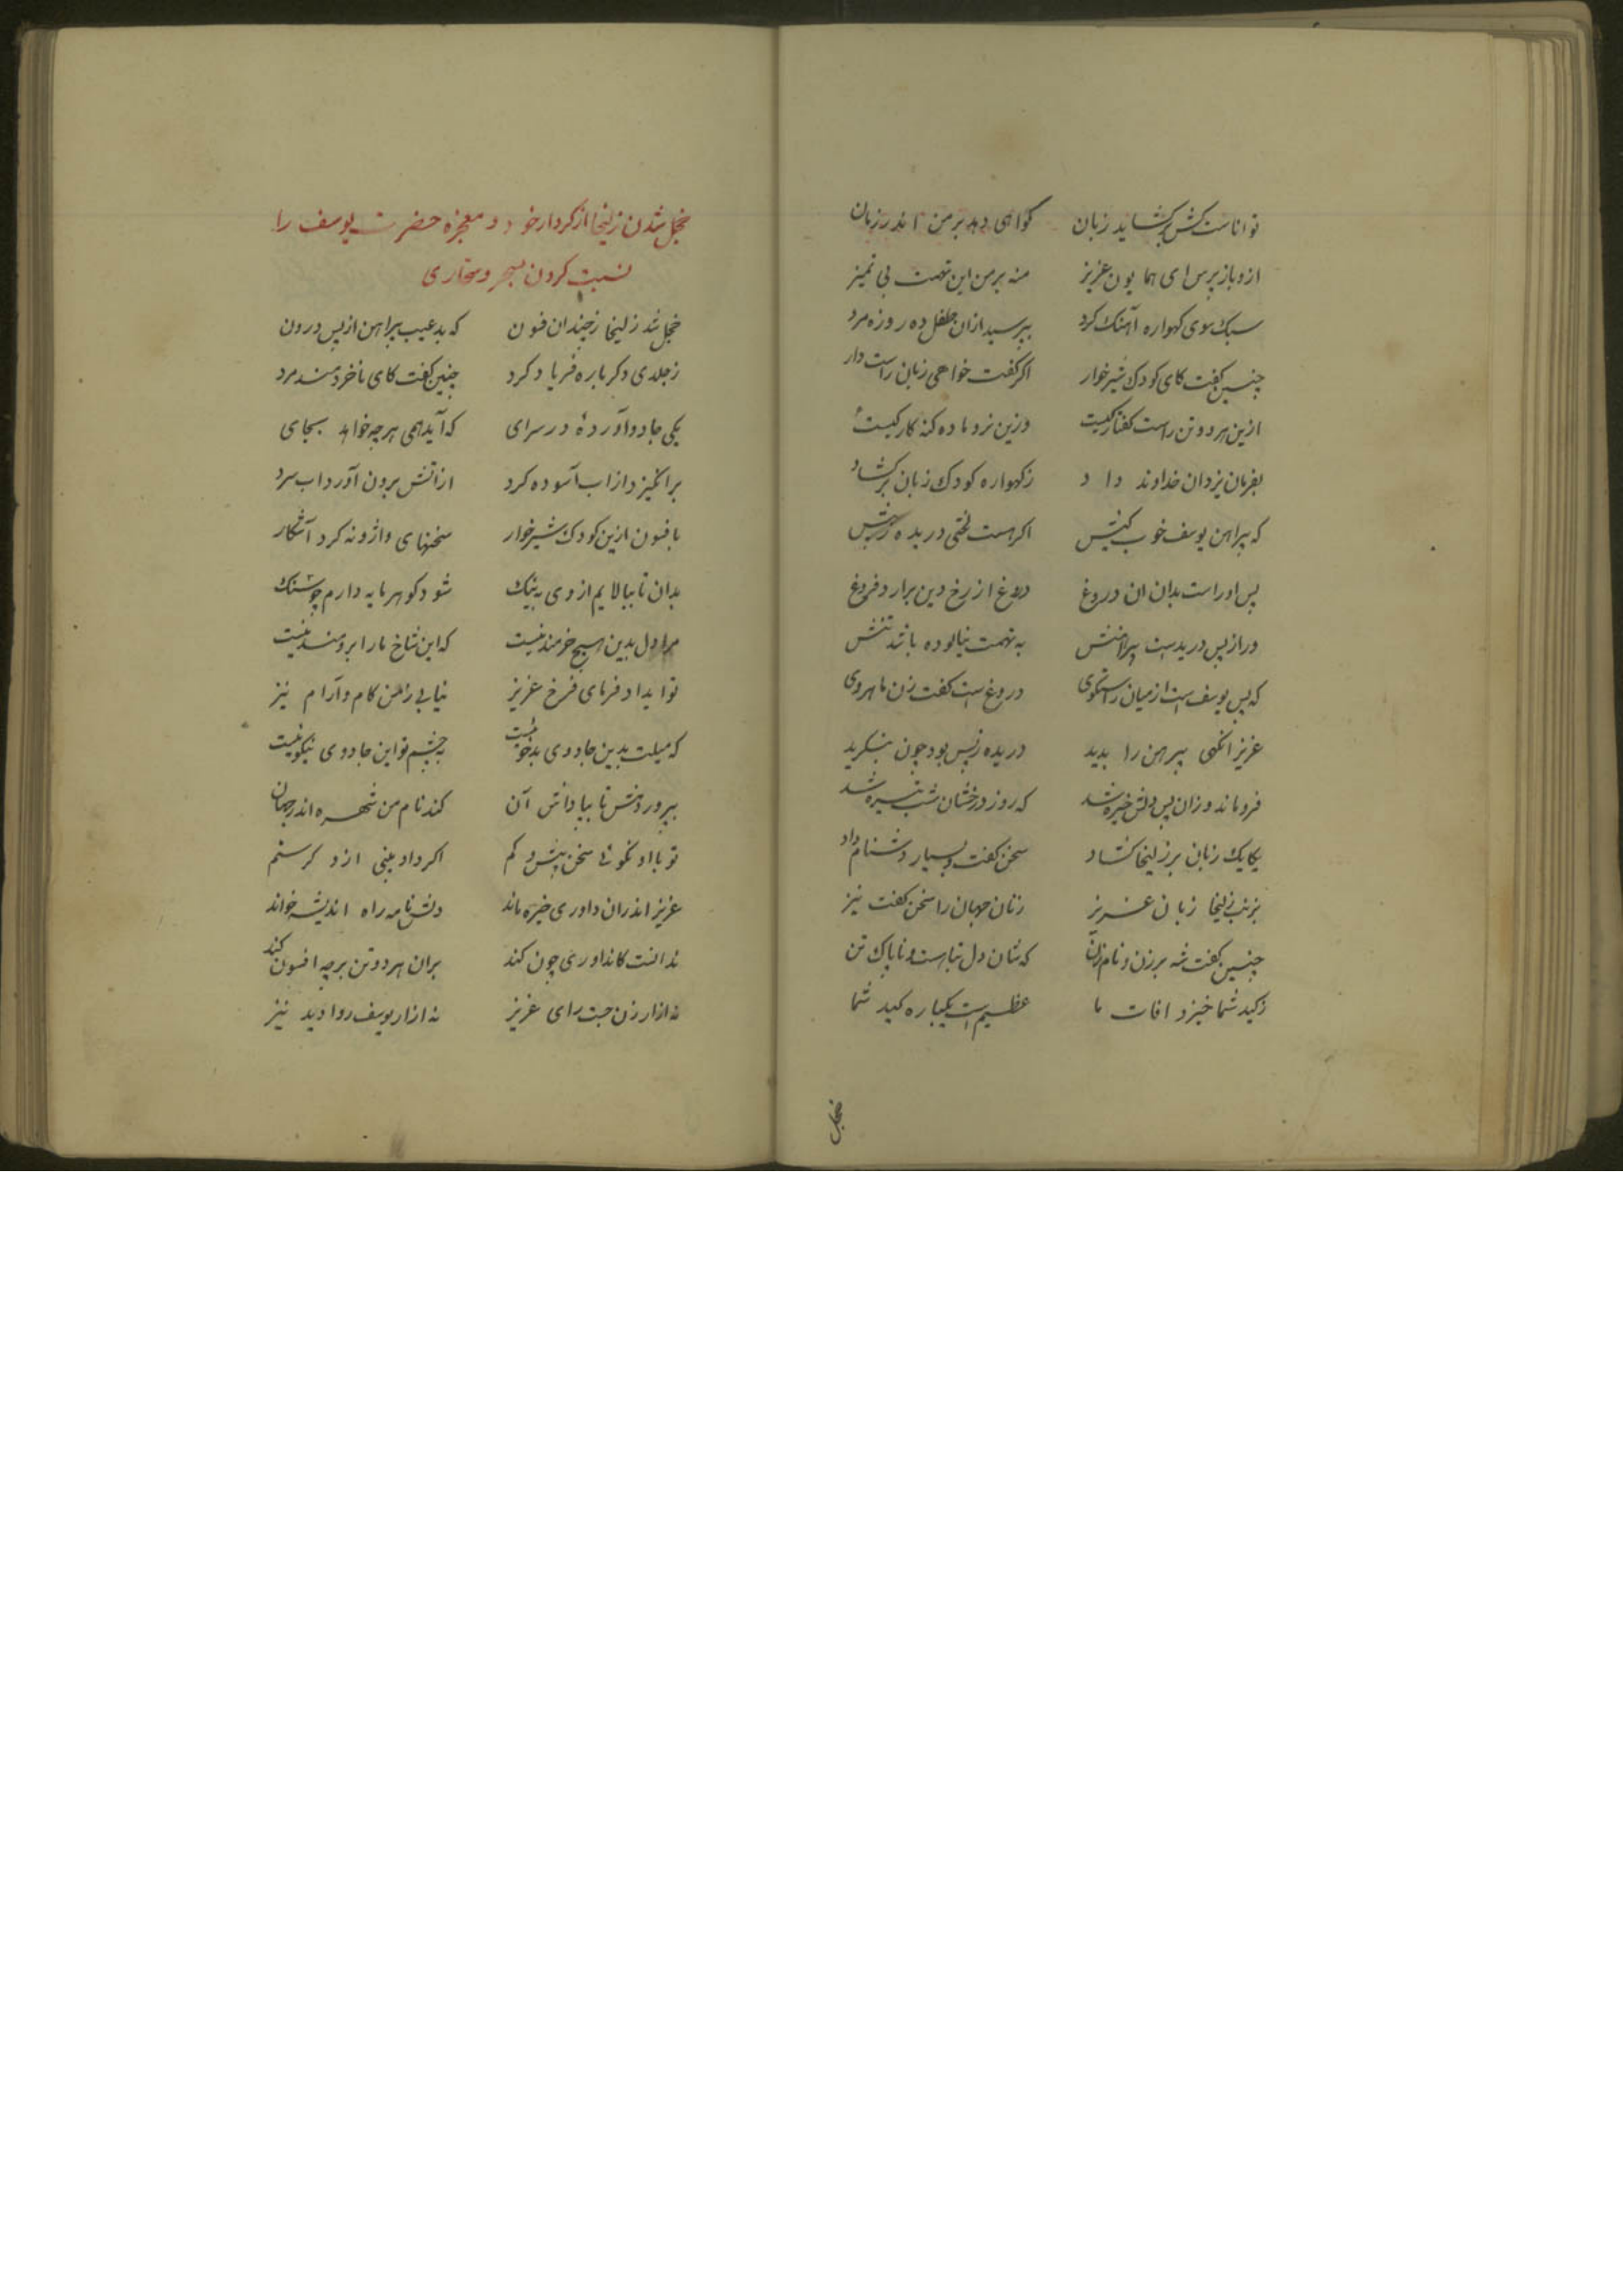 تواناست کش برگشاید زبان گواهی دهد بر من اندر زبان
ازو باز پرس ای همایون عزیز منه بر من این تهمت بی تمیز
سبک سوی کهواره آهنک کرد بپرسید ازان طفل ده روزه مرد
چنین کفت کای کودک شیرخوار اکر کفت خواهی زبان راست دار
ازین هر دو تن راست کفتار کیست وزین نر و ماده کنه کار کیست
بفرمان یزدان خداوند داد زکهواره کودک زبان برکشاد
که پیراهن یوسف خوب کیش اکر هست لختی دریده ز پیش
پس او راست بدان ان دروغ دروغ از رخ دین برارد فروغ
ور از پس دریدست پیراهنش به تهمت نیالوده باشد تنش
که پس یوسف است از میان راستکوی دروغ است کفت زن ماهروی
عزیز انکهی پیرهن را بدید دریده ز پس بود چون بنکرید
فرو ماند وزان پس دلش خیره شد که روز درخشان شب تیره شد
یکایک زبان بر زلیخا کشاد سخن کفت و بسیار دشنام داد
بزد بر زلیخا زبان عزیز زنان جهان را سخن کفت نیز
چنین کفت شه بر زن و نام زن که شان دل تباهست و ناپاک تن
زکید شما خیزد افات ما عظیم است یکباره کید شما
خجل
خجل شدن زلیخا از کردار خود و معجزه حضرت یوسف را
نسبت کردن بسحر و سحاری
خجل شد زلیخا ز چندان فنون که بد عیب پیراهن از پس درون
ز جلدی دکر باره فریاد کرد چنین کفت کای ناخردمند مرد
یکی جادو آوردهٔ در سرای که آید همی هرچه خواهد بجای
برانکیزد از اب آسوده کرد از اتش برون آورد اب سرد
بافسون ازین کودک شیرخوار سخنهای واژونه کرد آشکار
بدان تا بیالایم از وی به ننک شود کوهر مایه دارم چو سنک
مرا دل بدین هیچ خرمند نیست که این شاخ ما را برومند نیست
توا یداد فرمای فرخ عزیز نیابی ز من کام و آرام نیز
که میلت بدین جادوی بدخو نیست به چشم تو این جادوی نیکو نیست
بپروردنش تا بپاداش آن کند نام من شهره اندر جهان
تو با او نکوئی سخن بیش و کم اکر داد بینی ازو کر ستم
عزیز اندران داوری خیره ماند دلش نامه راه اندیشه خواند
ندانست کانداوری چون کند بران هر دو تن بر چه افسون کند
نه ازار زن جست رای عزیز نه ازار یوسف روا دید نیز